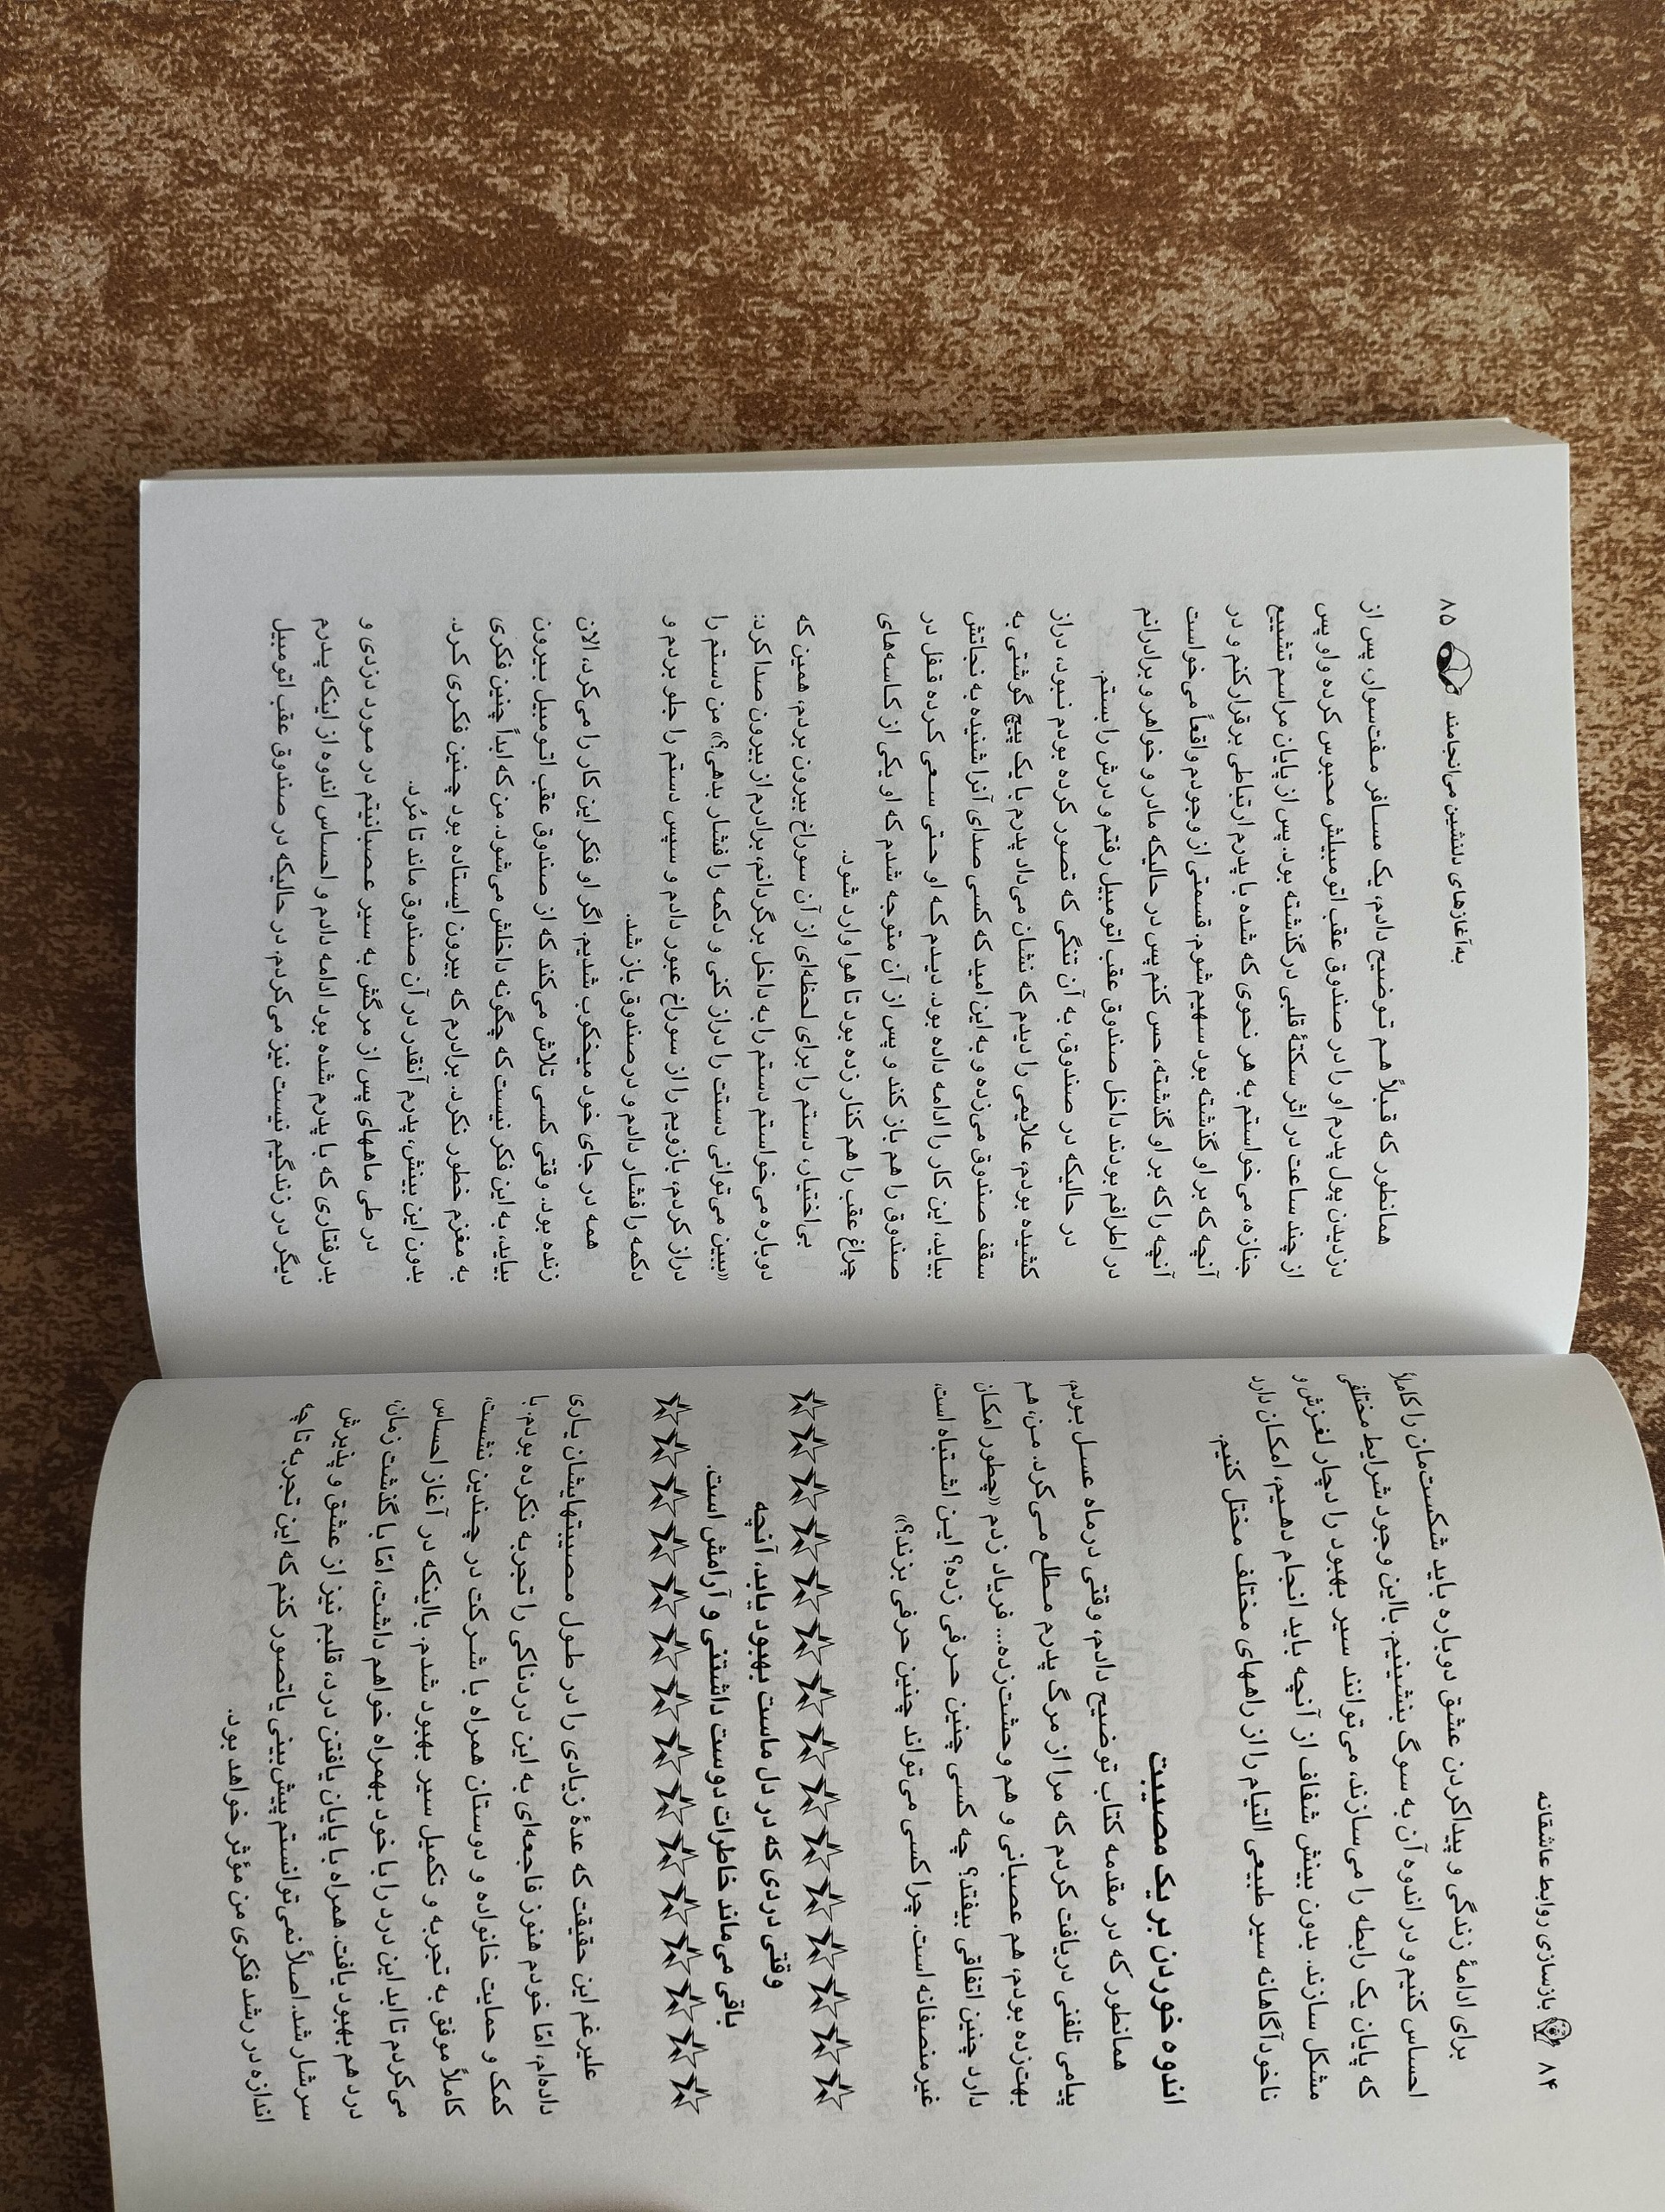 ۸۴ بازسازی روابط عاشقانه
برای ادامهٔ زندگی و پیداکردن عشق دوباره باید شکست‌مان را کاملاً
احساس کنیم و در اندوه آن به سوگ بنشینیم. بااین وجود شرایط مختلفی
که پایان یک رابطه را می‌سازند، می‌توانند سیر بهبود را دچار لغزش و
مشکل سازند. بدون بینش شفاف از آنچه باید انجام دهیم، امکان دارد
ناخودآگاهانه سیر طبیعی التیام را از راههای مختلف مختل کنیم.
اندوه خوردن بر یک مصیبت
همانطور که در مقدمه کتاب توضیح دادم، وقتی درماه عسل بودم،
پیامی تلفنی دریافت کردم که مرا از مرگ پدرم مطلع می‌کرد. من، هم
بهت‌زده بودم، هم عصبانی و هم وحشت‌زده... فریاد زدم «چطور امکان
دارد چنین اتفاقی بیفتد؟ چه کسی چنین حرفی زده؟ این اشتباه است،
غیرمنصفانه است. چرا کسی می‌تواند چنین حرفی بزند؟»
وقتی دردی که در دل ماست بهبود یابد، آنچه
باقی می‌ماند خاطرات دوست داشتنی و آرامش است.
علیرغم این حقیقت که عدهٔ زیادی را در طول مصیبتهایشان یاری
داده‌ام، امّا خودم هنوز فاجعه‌ای به این دردناکی را تجربه نکرده بودم. با
کمک و حمایت خانواده و دوستان همراه با شرکت در چندین نشست،
کاملاً موفق به تجربه و تکمیل سیر بهبود شدم. بااینکه در آغاز احساس
می‌کردم تا ابد این درد را با خود بهمراه خواهم داشت، امّا با گذشت زمان،
درد هم بهبود یافت. همراه با پایان یافتن درد، قلبم نیز از عشق و پذیرش
سرشار شد. اصلاً نمی‌توانستم پیش‌بینی یا تصور کنم که این تجربه تا چه
اندازه در رشد فکری من مؤثر خواهد بود.
به آغازهای دلنشین می‌انجامند ۸۵
همانطور که قبلاً هم توضیح دادم، یک مسافر مفت‌سوار، پس از
دزدیدن پول پدرم او را در صندوق عقب اتومبیلش محبوس کرده و او پس
از چند ساعت در اثر سکتهٔ قلبی درگذشته بود. پس از پایان مراسم تشییع
جنازه، می‌خواستم به هر نحوی که شده با پدرم ارتباطی برقرار کنم و در
آنچه که بر او گذشته بود سهیم شوم. قسمتی از وجودم واقعاً می‌خواست
آنچه را که بر او گذشته، حس کنم پس در حالیکه مادر و خواهر و برادرانم
در اطرافم بودند داخل صندوق عقب اتومبیل رفتم و درش را بستم.
در حالیکه در صندوق، به آن تنگی که تصور کرده بودم نبود، دراز
کشیده بودم، علایمی را دیدم که نشان می‌داد پدرم با یک پیچ گوشتی به
سقف صندوق می‌زده و به این امید که کسی صدای آنرا شنیده به نجاتش
بیاید، این کار را ادامه داده بود. دیدم که او حتی سعی کرده قفل در
صندوق را هم باز کند و پس از آن متوجه شدم که او یکی از کاسه‌های
چراغ عقب را هم کنار زده بود تا هوا وارد شود.
بی‌اختیار، دستم را برای لحظه‌ای از آن سوراخ بیرون بردم، همین که
دوباره می‌خواستم دستم را به داخل برگردانم، برادرم از بیرون صدا کرد:
«ببین می‌توانی دستت را دراز کنی و دکمه را فشار بدهی؟» من دستم را
دراز کردم، بازویم را از سوراخ عبور دادم و سپس دستم را جلو بردم و
دکمه را فشار دادم و درصندوق باز شد.
همه در جای خود میخکوب شدیم. اگر او فکر این کار را می‌کرد، الان
زنده بود. وقتی کسی تلاش می‌کند که از صندوق عقب اتومبیل بیرون
بیاید، به این فکر نیست که چگونه داخلش می‌شود. من که ابداً چنین فکری
به مغزم خطور نکرد. برادرم که بیرون ایستاده بود چنین فکری کرد.
بدون این بینش، پدرم آنقدر در آن صندوق ماند تا مُرد.
در طی ماههای پس از مرگش به سیر عصبانیتم در مورد دزدی و
بدرفتاری که با پدرم شده بود ادامه دادم و احساس اندوه از اینکه پدرم
دیگر در زندگیم نیست نیز می‌کردم. در حالیکه در صندوق عقب اتومبیل